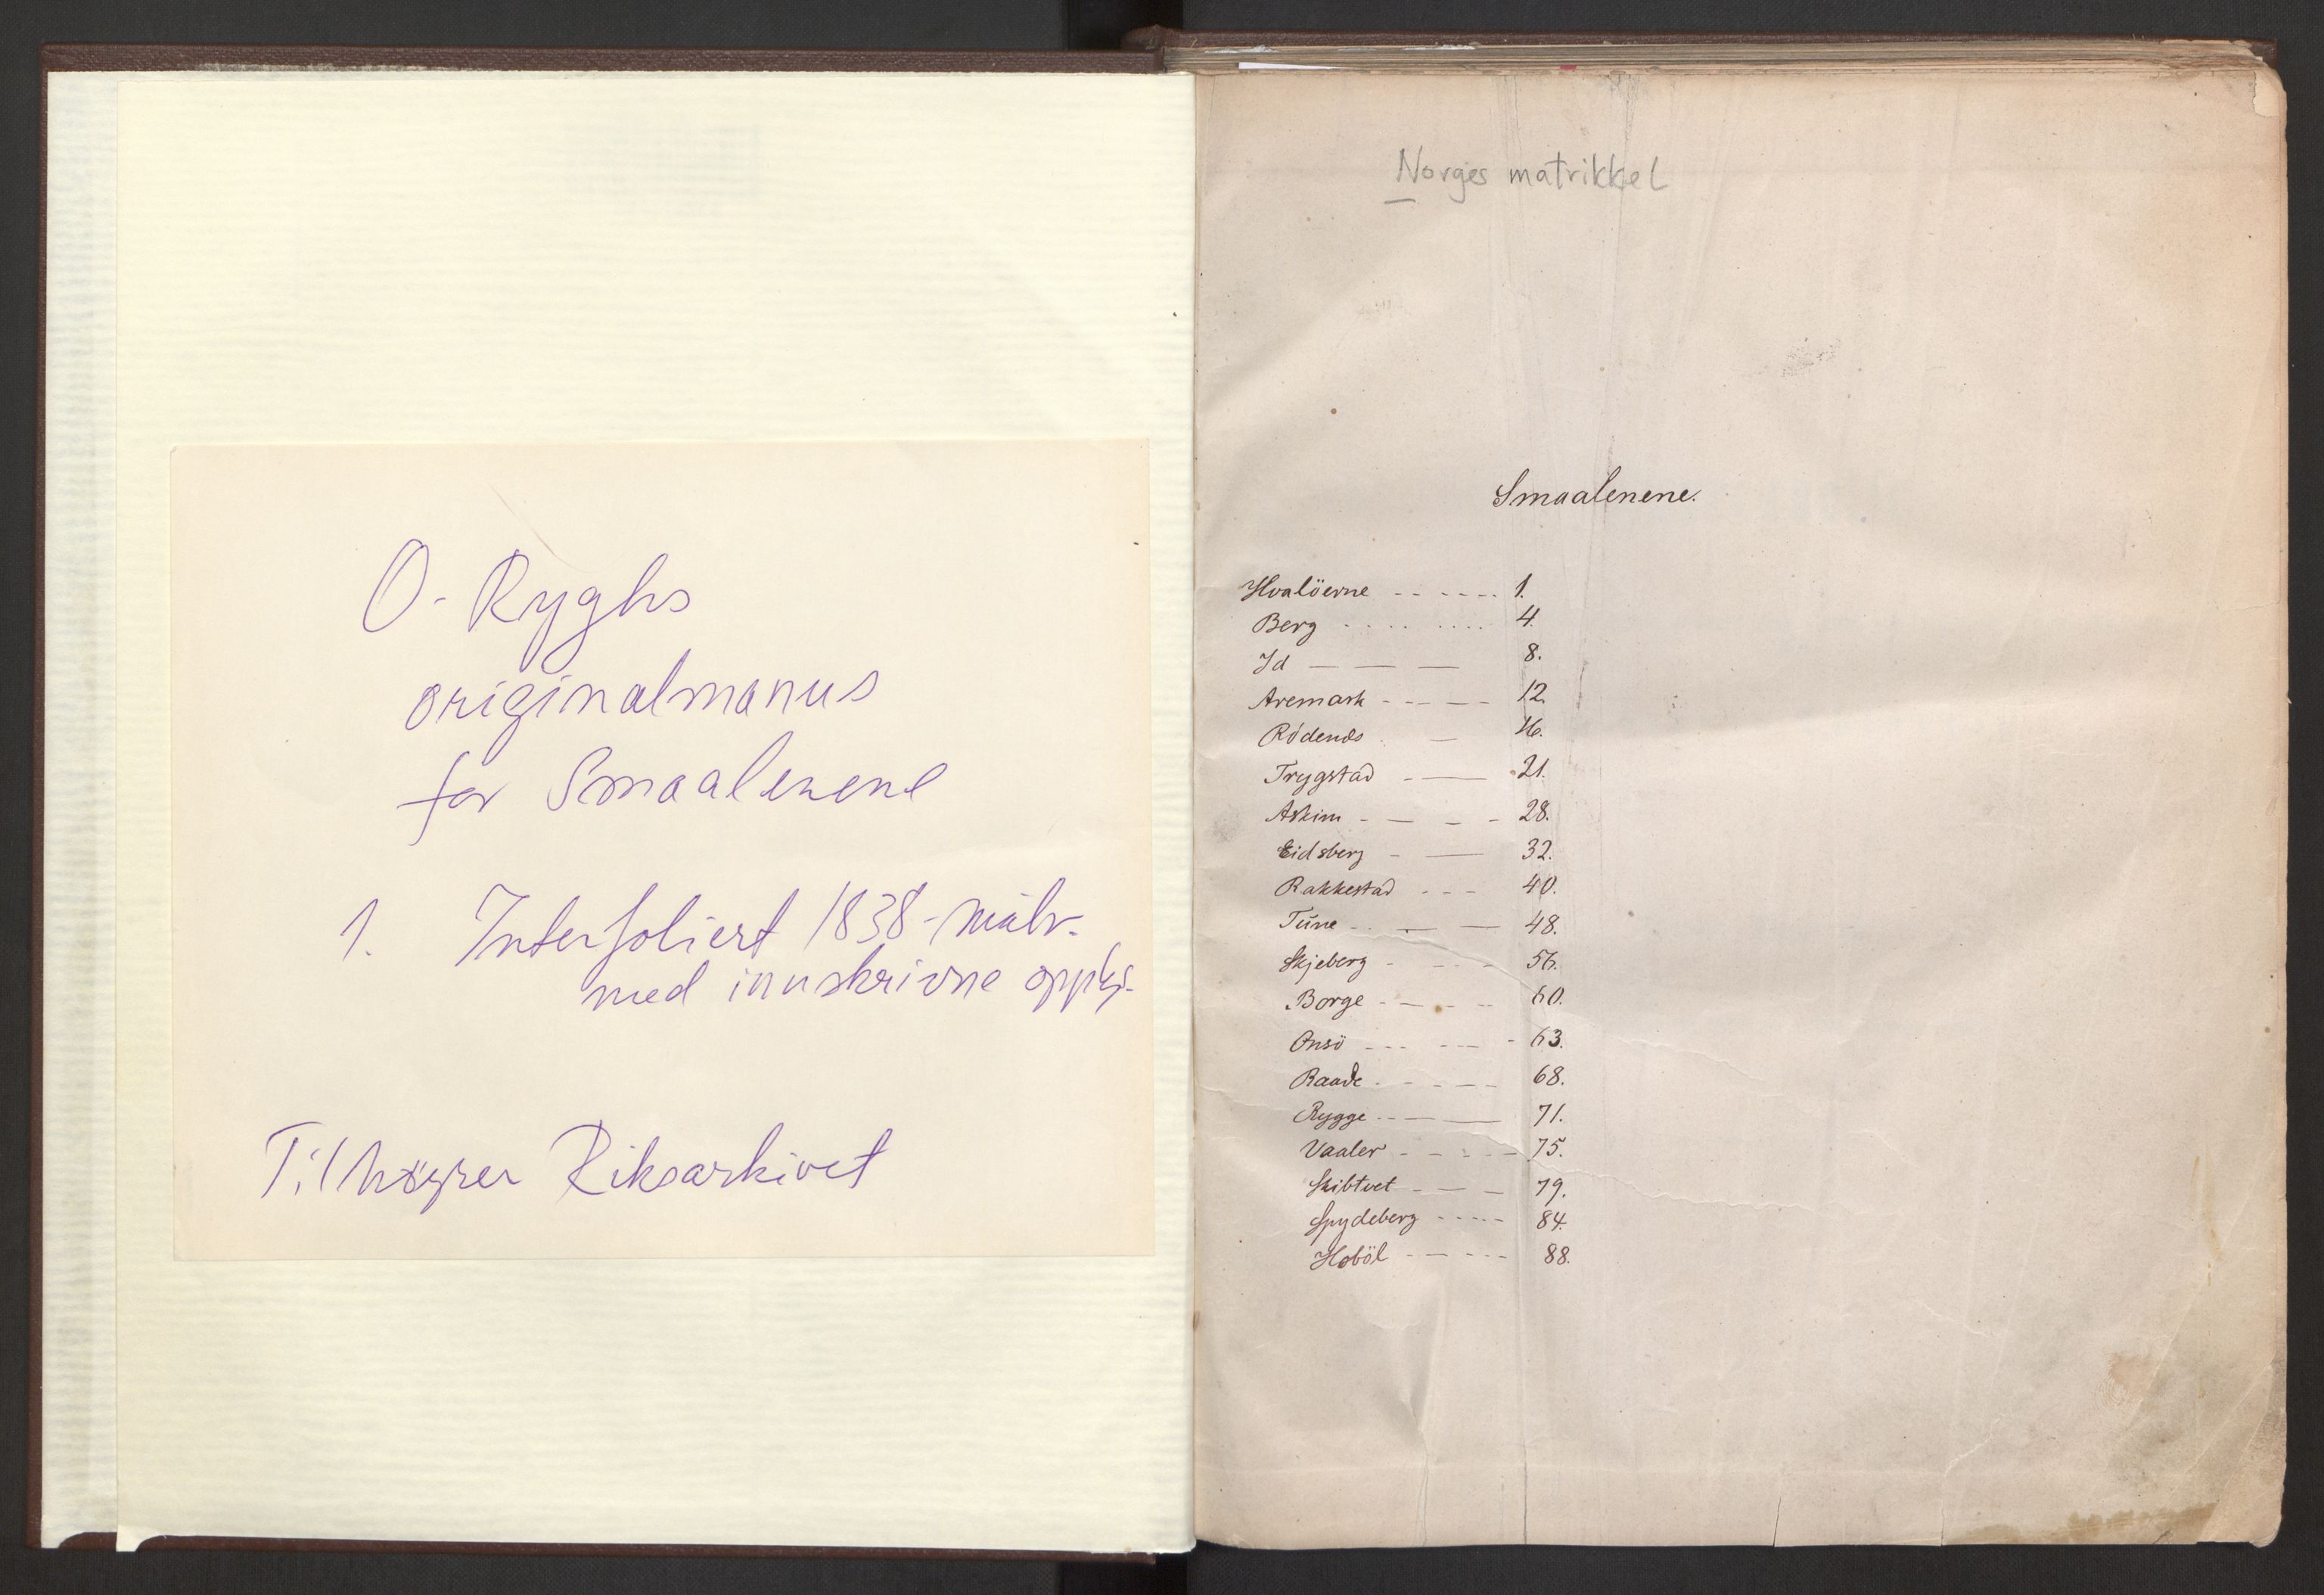 O. Ryghs
originalmanus
for Smaalenene
1. Interfoliert 1838-matr.
med innskrivne opplys.
Tilhører Riksarkivet
Norges matrikkel
Smaalenene.
Hvalöerne - - - - - - 1.
Berg . . . . . . . . 4.
Id — — — 8.
Aremark - - - — - 12.
Rödenæs . — 16.
Trygstad - — 21.
Askim - — - - 28.
Eidsberg - — 32.
Rakkestad - - - 40.
Tune - . — — 48.
Skjeberg - - - - 56.
Borge - — - - 60.
Onsö - - - - — - 63.
Raade - - - — - 68.
Rygge - - — — 71.
Vaaler - - - - - 75.
Skibtvet - - — - 79.
Spydeberg - - - - - 84.
Hoböl - — - - - 88.